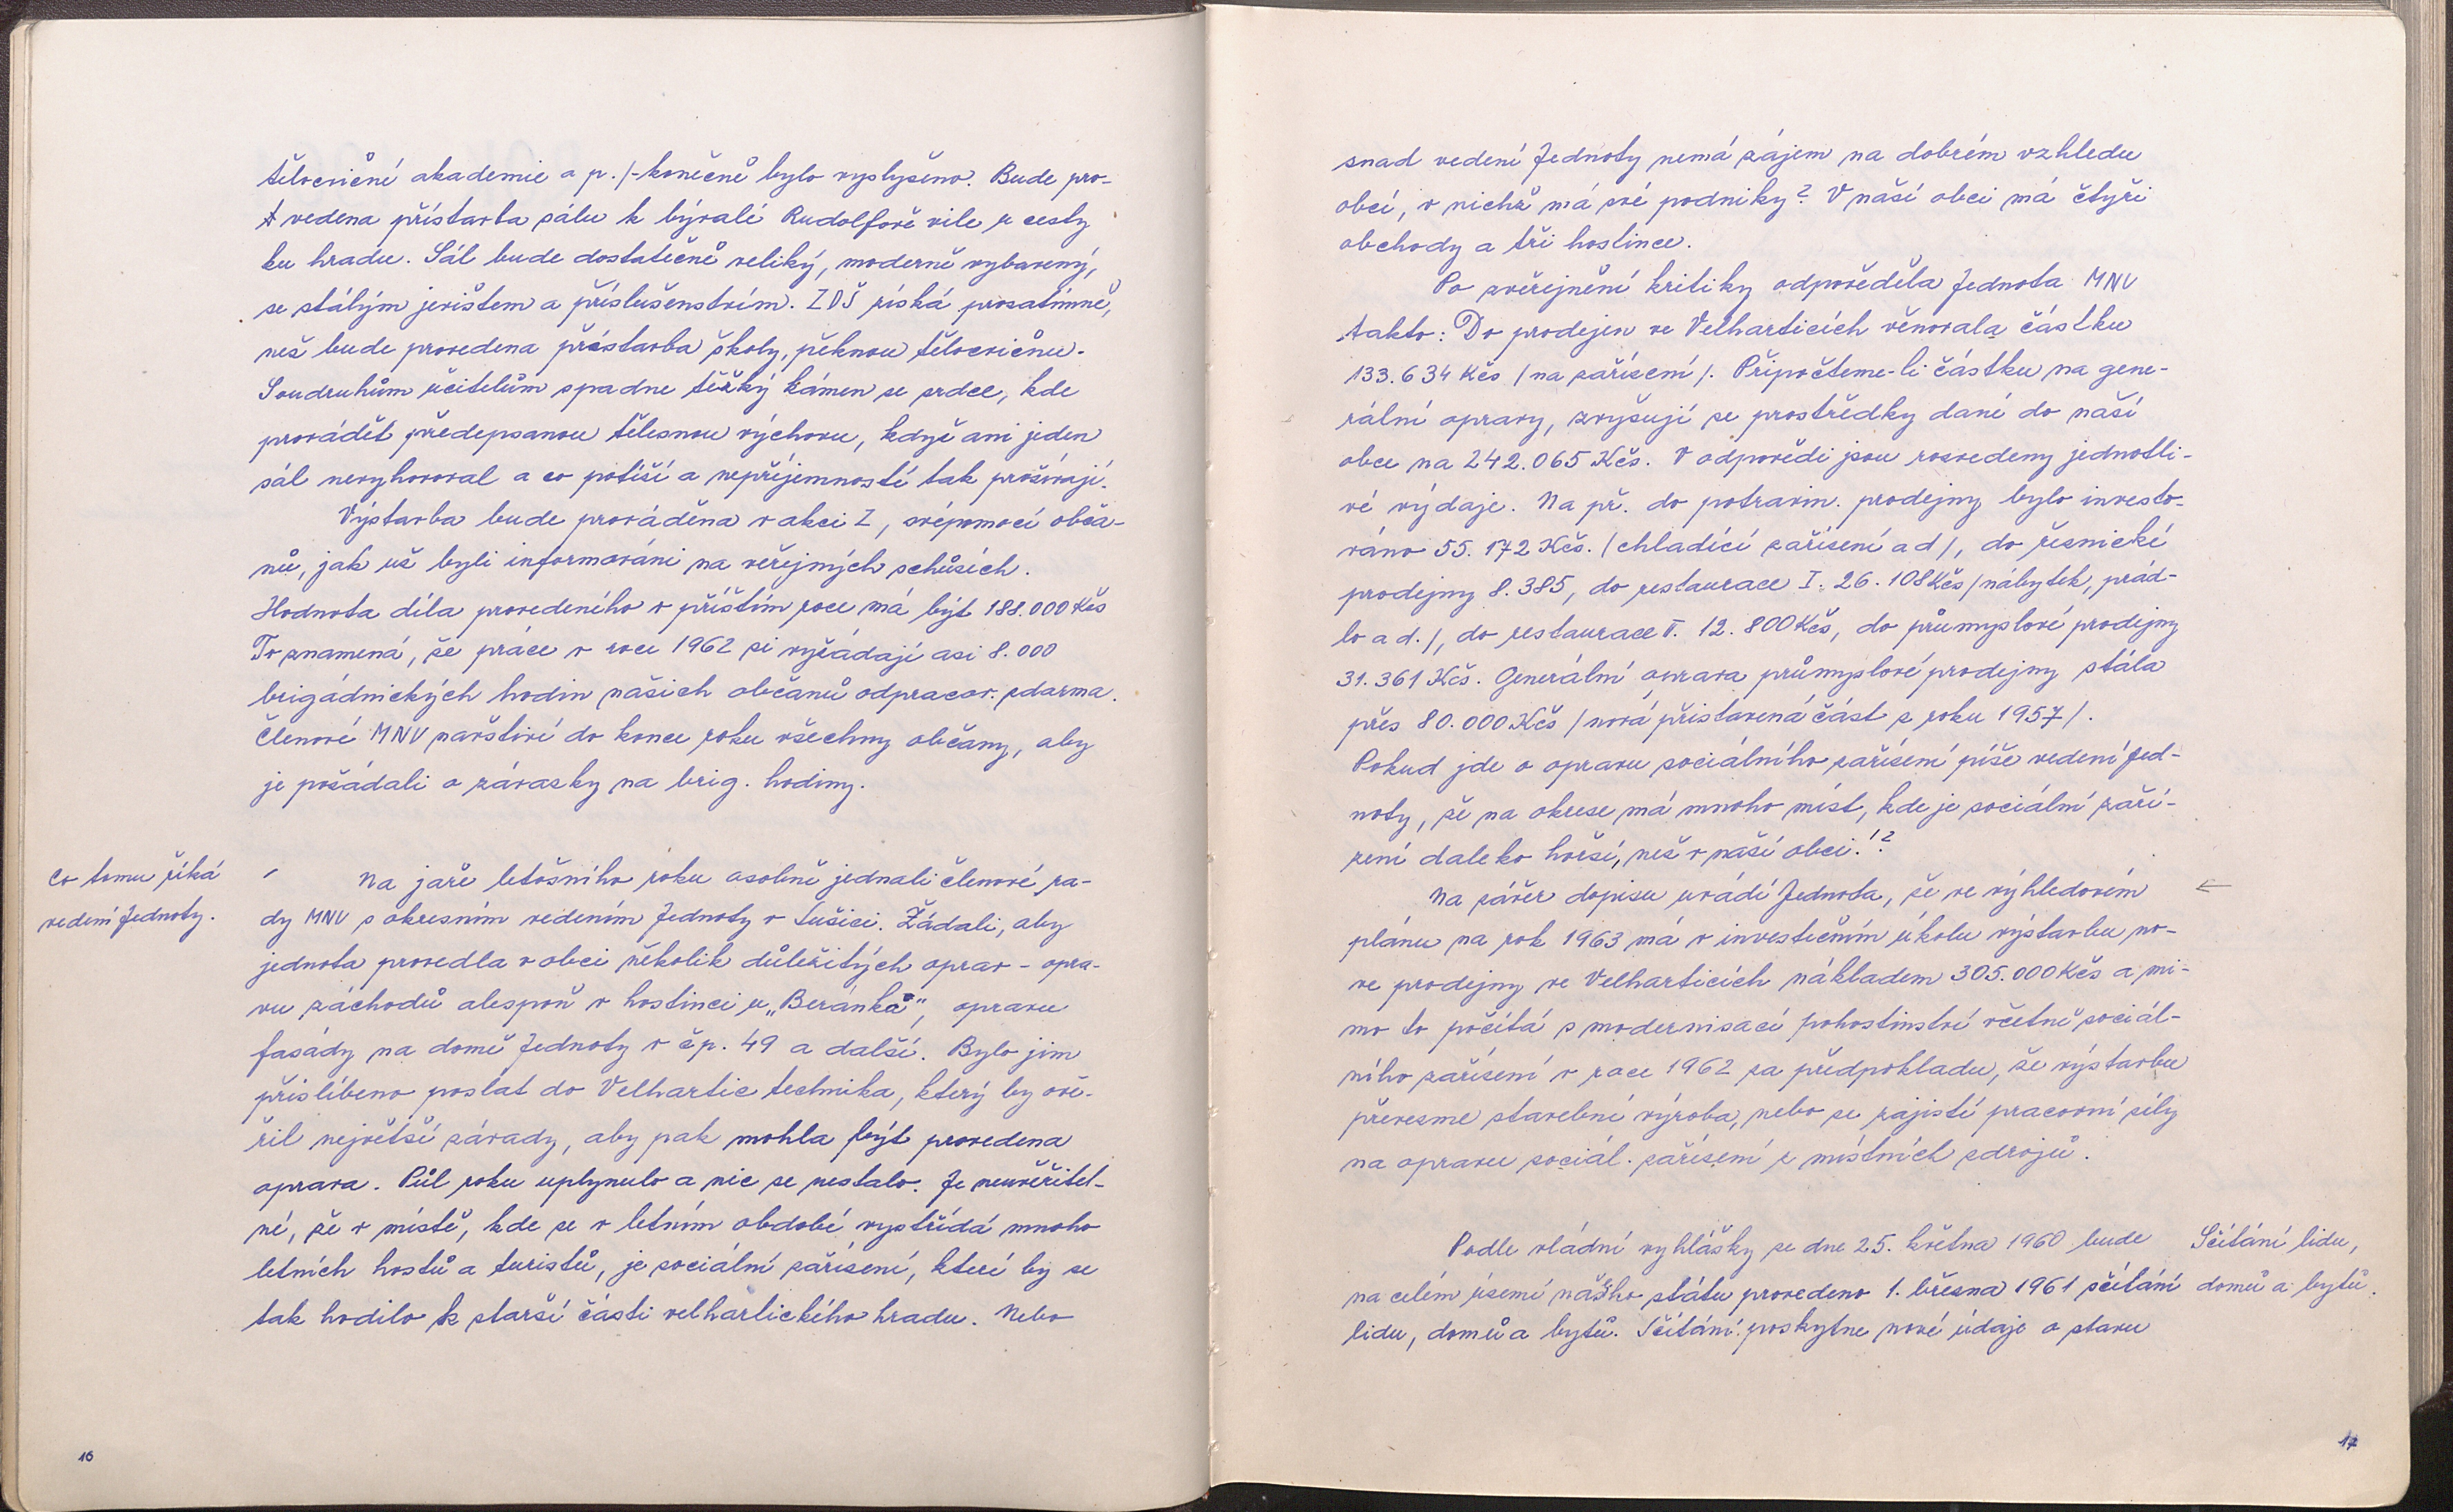 tělocvičné akademie a p./-konečně bylo vyslyšeno. Bude pro-
vedena přístavba sálu k bývalé Rudolfově vile u cesty
ku hradu. Sál bude dostatečně veliký, moderně vybavený,
se stálým jevištem a příslušenstvím. ZDŠ získá prozatímně,
než bude provedena přístavba školy, pěknou tělocvičnu.
Soudruhům učitelům spadne těžký kámen se srdce, kde
provádět předepsanou tělesnou výchovu, když ani jeden
sál nevyhovoval a co potíží a nepříjemností tak prožívají.
Výstavba bude prováděna v akci Z, svépomocí obča-
nů, jak už byli informováni na veřejných schůzích.
Hodnota díla provedeného v příštím roce má být 188.000 Kčs
To znamená, že práce v roce 1962 si vyžádají asi 8.000
brigádnických hodin našich občanů odpracov. zdarma.
Členové MNV navštíví do konce roku všechny občany, aby
je požádali o závazky na brig. hodiny.
Co tomu říká
vedení Jednoty.
Na jaře letošního roku osobně jednali členové ra-
dy MNV s okresním vedením Jednoty v Sušici. Žádali, aby
jednota provedla v obci několik důležitých oprav - opra-
vu záchodů alespoň v hostinci u „Beránka", opravu
fasády na domě Jednoty v čp. 49 a další. Bylo jim
přislíbeno poslat do Velhartic technika, který by ově-
řil největší závady, aby pak mohla být provedena
oprava. Půl roku uplynulo a nic se nestalo. Je neuvěřitel-
né, že v místě, kde se v letním období vystřídá mnoho
letních hostů a turistů, je sociální zařízení, které by se
tak hodilo k starší části velhartického hradu. Nebo
16
snad vedení Jednoty nemá zájem na dobrém vzhledu
obcí, v nichž má své podniky? V naší obci má čtyři
obchody a tři hostince.
Po zveřejnění kritiky odpověděla Jednota MNV
takto: Do prodejen ve Velharticích věnovala částku
133.634 Kčs /na zařízení/. Připočteme-li částku na gene-
rální opravy, zvyšují se prostředky dané do naší
obce na 242.065 Kčs. V odpovědi jsou rozvedeny jednotli-
vé výdaje. Na př. do potravin. prodejny bylo investo-
váno 55.172 Kčs. /chladící zařízení a d/, do řeznické
prodejny 8.385, do restaurace I. 26.108 Kčs /nábytek, prád-
lo a d./, do restaurace V. 12.800 Kčs, do průmyslové prodejny
31.361 Kčs. Generální oprava průmyslové prodejny stála
přes 80.000 Kčs /nová přistavená část z roku 1957/.
Pokud jde o opravu sociálního zařízení píše vedení Jed-
noty, že na okrese má mnoho míst, kde je sociální zaří-
zení daleko horší, než v naší obci.!?
Na závěr dopisu uvádí Jednota, že ve výhledovém
plánu na rok 1963 má v investičním úkolu výstavbu no-
ve prodejny ve Velharticích nákladem 305.000 Kčs a mi-
mo to počítá s modernisací pohostinství včetně sociál-
ního zařízení v roce 1962 za předpokladu, že výstavbu
převezme stavební výroba, nebo se zajistí pracovní síly
na opravu sociál. zařízení z místních zdrojů.
Podle vládní vyhlášky ze dne 25. května 1960 bude
na celém území našeho státu provedeno 1. března 1961 sčítání
lidu, domů a bytů. Sčítání poskytne nové údaje o stavu
Sčítání lidu,
domů a bytů.
17